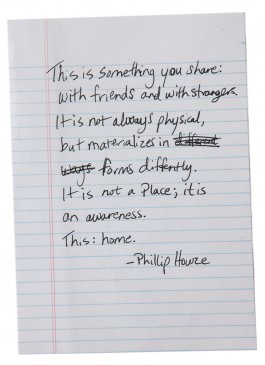 This is something you share:
with friends and with strangers.
It is not always physical,
but materializes in different
ways forms diffently.
It is not a Place; it is
an awareness.
This: home.
- Phillip Howze